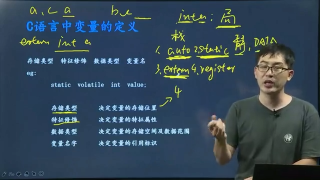 a.c a
b.c
C语言中变量的定义
extern int a
int a: 局
栈
1. auto 2 static 静, DATA
3. extern 4. register
4
存储类型 特征修饰 数据类型 变量名
eg:
static volatile int value;
存储类型 决定变量的存储位置
特征修饰 决定变量的特征属性
数据类型 决定变量的存储空间及数据范围
变量名字 决定变量的引用标识